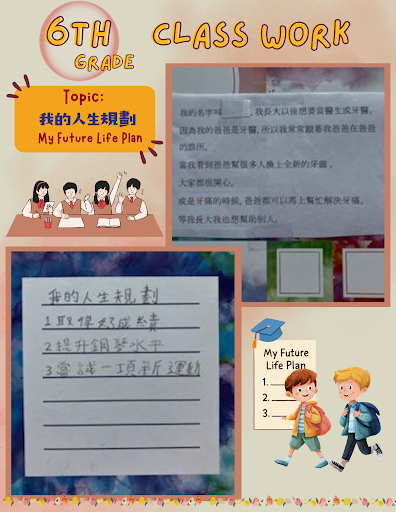 6TH CLASS WORK
GRADE
Topic:
我的人生規劃
My Future Life Plan
我的名字叫 ，我長大以後想要當醫生或牙醫。
因為我的爸爸是牙醫，所以我常常跟著我爸爸在爸爸
的診所。
當我看到爸爸幫很多人換上全新的牙齒，
大家都很開心。
或是牙痛的時候，爸爸都可以馬上幫忙解決牙痛。
等我長大我也想幫助別人。
我的人生規劃
1取得好成績
2提升鋼琴水平
3嘗試一項新運動
My Future
Life Plan
1.
2.
3.